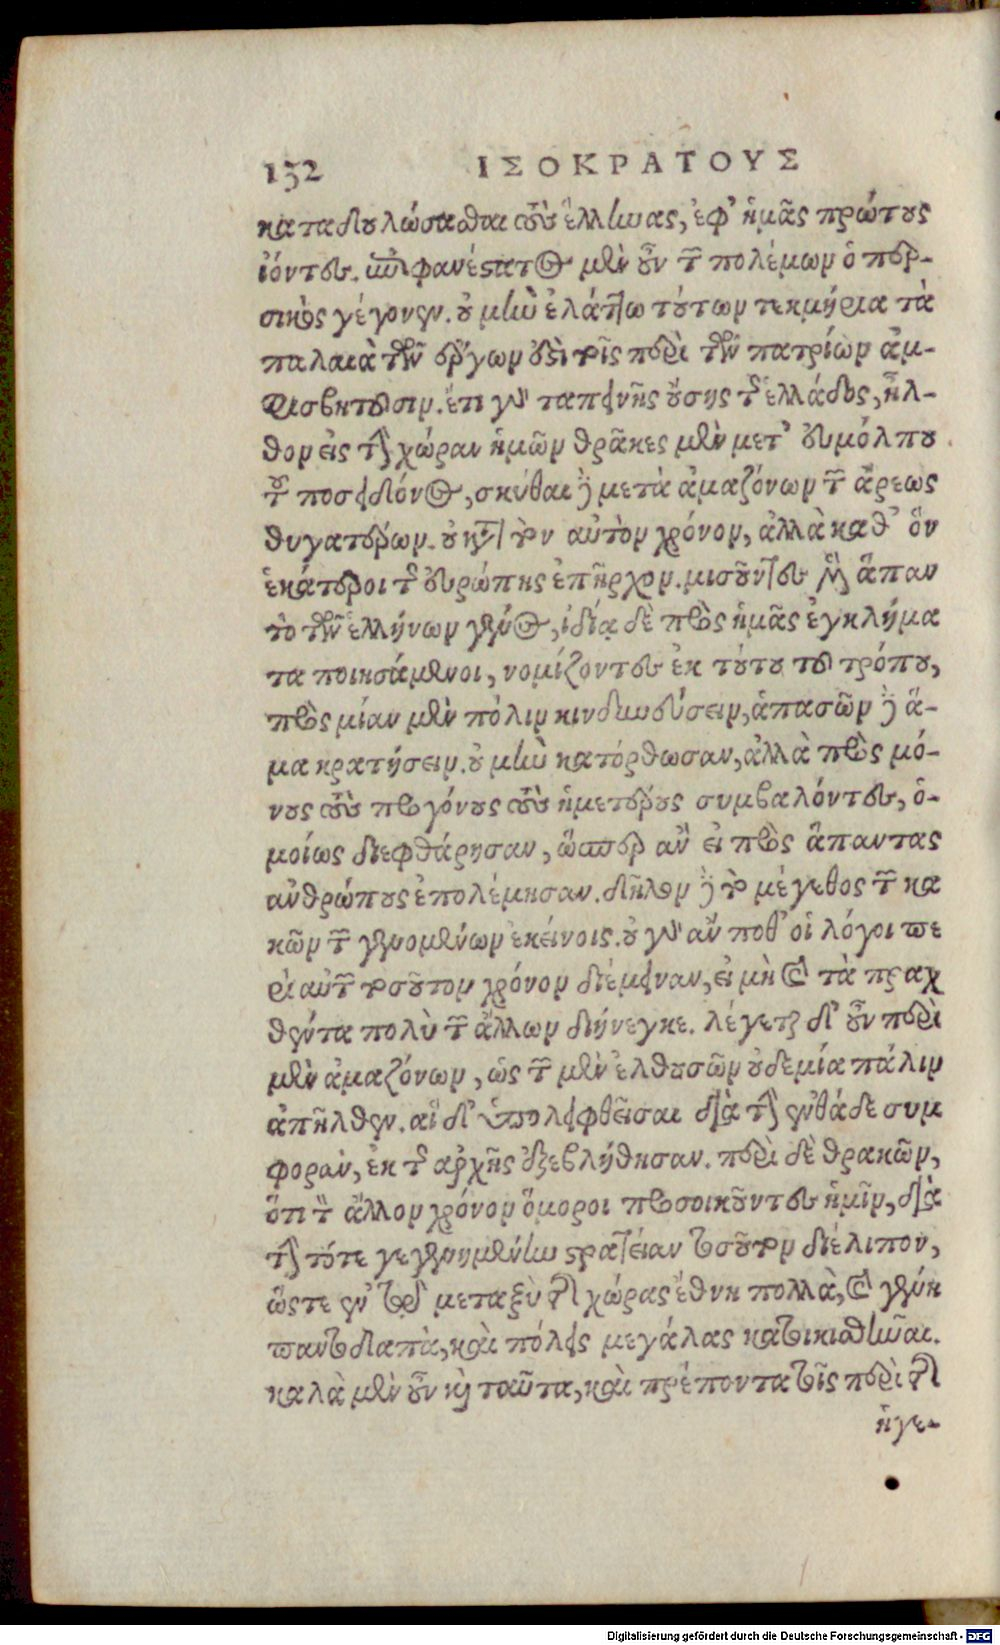 152 ΙΣΟΚΡΑΤΟΥΣ
καταδουλώσασθαι τοὺς ἕλληνας, ἐφ' ἡμᾶς πρώτους
ἰόντες. ἐπιφανέστατος μὲν οὖν τῶν πολέμων ὁ περ-
σικὸς γέγονεν. οὐ μὴν ἐλάττω τούτων τεκμήρια τὰ
παλαιὰ τῶν ἔργων ἐστὶ τοῖς περὶ τῶν πατρίων ἀμ-
φισβητοῦσιν. ἔτι γὰρ ταπεινῆς οὔσης τῆς ἑλλάδος, ἦλ-
θον εἰς τὴν χώραν ἡμῶν θρᾷκες μὲν μετ' εὐμόλπου
τοῦ ποσειδῶνος, σκύθαι δὲ μετὰ ἀμαζόνων τῶν ἄρεως
θυγατέρων. οὐ κατὰ τὸν αὐτὸν χρόνον, ἀλλὰ καθ' ὃν
ἑκάτεροι τῆς εὐρώπης ἐπῆρχον. μισοῦντες μὲν ἅπαν
τὸ τῶν ἑλλήνων γένος, ἰδίᾳ δὲ πρὸς ἡμᾶς ἐγκλήμα
τα ποιησάμενοι, νομίζοντες ἐκ τούτου τοῦ τρόπου,
πρὸς μίαν μὲν πόλιν κινδυνεύσειν, ἁπασῶν δὲ ἅ-
μα κρατήσειν. οὐ μὴν κατόρθωσαν, ἀλλὰ πρὸς μό-
νους τοὺς προγόνους τοὺς ἡμετέρους συμβαλόντες, ὁ-
μοίως διεφθάρησαν, ὥσπερ ἂν εἰ πρὸς ἅπαντας
ἀνθρώπους ἐπολέμησαν. δῆλον δὲ τὸ μέγεθος τῶν κα
κῶν τῶν γενομένων ἐκείνοις. οὐ γὰρ ἄν ποθ' οἱ λόγοι πε
ρὶ αὐτῶν τοσοῦτον χρόνον διέμειναν, εἰ μὴ καὶ τὰ πραχ
θέντα πολὺ τῶν ἄλλων διήνεγκε. λέγεται δ' οὖν περὶ
μὲν ἀμαζόνων, ὡς τῶν μὲν ἐλθουσῶν οὐδεμία πάλιν
ἀπῆλθεν. αἱ δ' ὑπολειφθεῖσαι διὰ τὴν ἐνθάδε συμ
φορὰν, ἐκ τῆς ἀρχῆς ἐξεβλήθησαν. περὶ δὲ θρακῶν,
ὅτι τὸν ἄλλον χρόνον ὅμοροι προσοικοῦντες ἡμῖν, διὰ
τὴν τότε γεγενημένην στρατείαν τοσοῦτον διέλιπον,
ὥστε ἐν τῷ μεταξὺ τῆς χώρας ἔθνη πολλὰ, καὶ γένη
παντοδαπὰ, καὶ πόλεις μεγάλας κατοικισθῆναι.
καλὰ μὲν οὖν καὶ ταῦτα, καὶ πρέποντα τοῖς περὶ τῆς
ἡγε-
Digitalisierung gefördert durch die Deutsche Forschungsgemeinschaft - DFG